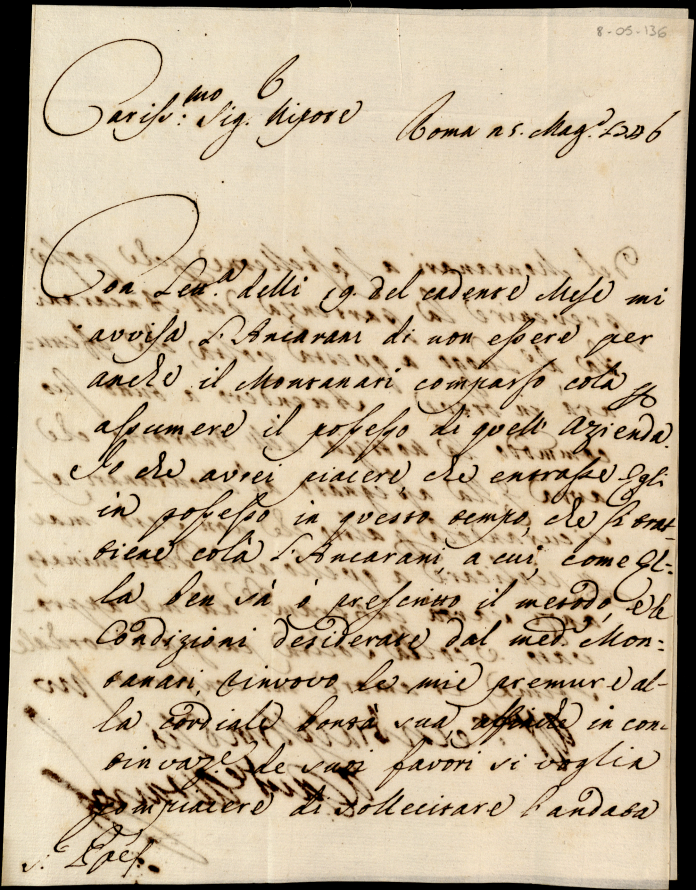 8-05-136
Cariss:mo Sig. Nipote
Roma a 5. Mag.o 1746
Con Lett.a delli 29. del cadente Mese mi
avvisa l'Ancarani di non essere per
anche il Montanari comparso colà
assumere il possesso di quell'Azienda.
Io che avrei piacere che entrasse Egli
in possesso in questo tempo, che si trat-
tiene colà l'Ancarani, a cui, come El-
la ben sà ò prescritto il metodo, e le
Condizioni desiderate dal med.o Mon=
tanari, rinovo le mie premure al-
la cordiale bontà sua, affinche in con-
tinvaz.e de suoi favori si voglia
compiacere di sollecitare l'andata